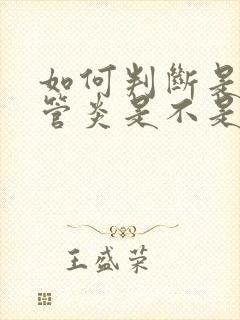 如何判斷是
管炎是不是
王盛荣